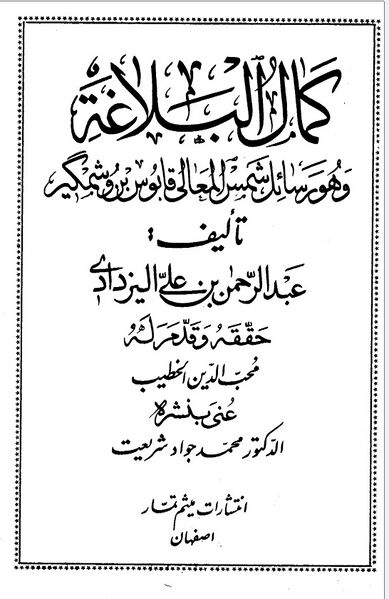 كمال البلاغة
وهو رسائل شمس المعالي قابوس بن وشمگير
تأليف:
عبد الرحمٰن بن علي اليزدادي
حققه وقدم له
محب الدين الخطيب
عنى بنشره
الدكتور محمد جواد شريعت
انتشارات ميثم تمار
اصفهان